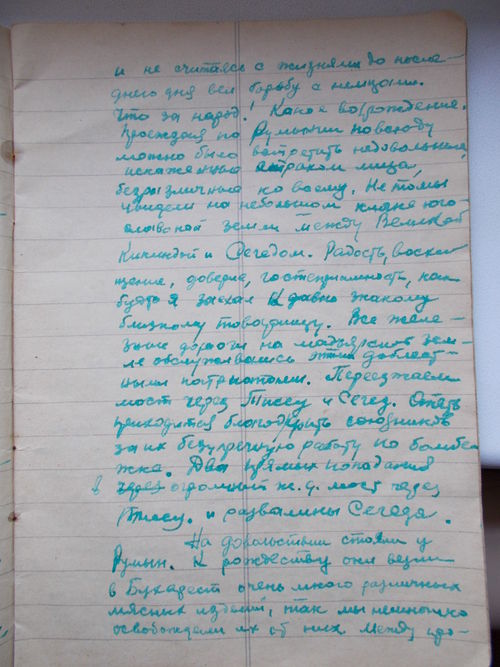 и не считаясь с жизнями до после-
днего дня вел борьбу с немцами.
Что за народ! Какое возрождение.
Проезжая по Румынии повсюду
можно было встретить недовольные,
искаженные страхом лица,
безразличные ко всему. Не то мы
увидели на небольшом клине юго-
славской земли между Великой
Кикиндой и Сегедом. Радость, восхи-
щение, доверие, гостеприимность, как
будто я заехал к давно знакому
близкому товарищу. Все желе-
зные дороги на мадьярской зем-
ле обслуживались этими доблест-
ными патриотами. Переезжаем
мост через Тиссу и Сегед. Опять
приходится благодарить союзников
за их безупречную работу по бомбе-
жке. Два прямых попадания
в через огромный ж.д. мост через
Тиссу. и развалины Сегеда.
На довольствии стояли у
Румын. К рождеству они везли
в Будапест очень много различных
мясных изделий, так мы немножко
освобождали их от них. Между